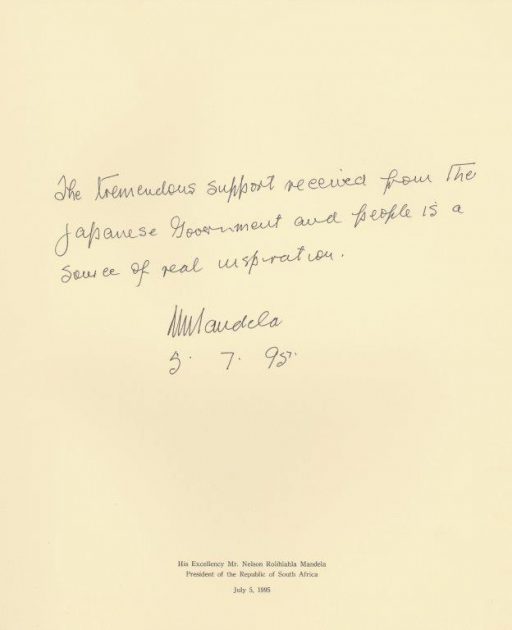 The tremendous support received from the
Japanese Government and people is a
source of real inspiration.
NMandela
5. 7. 95.
His Excellency Mr. Nelson Rolihlahla Mandela
President of the Republic of South Africa
July 5, 1995